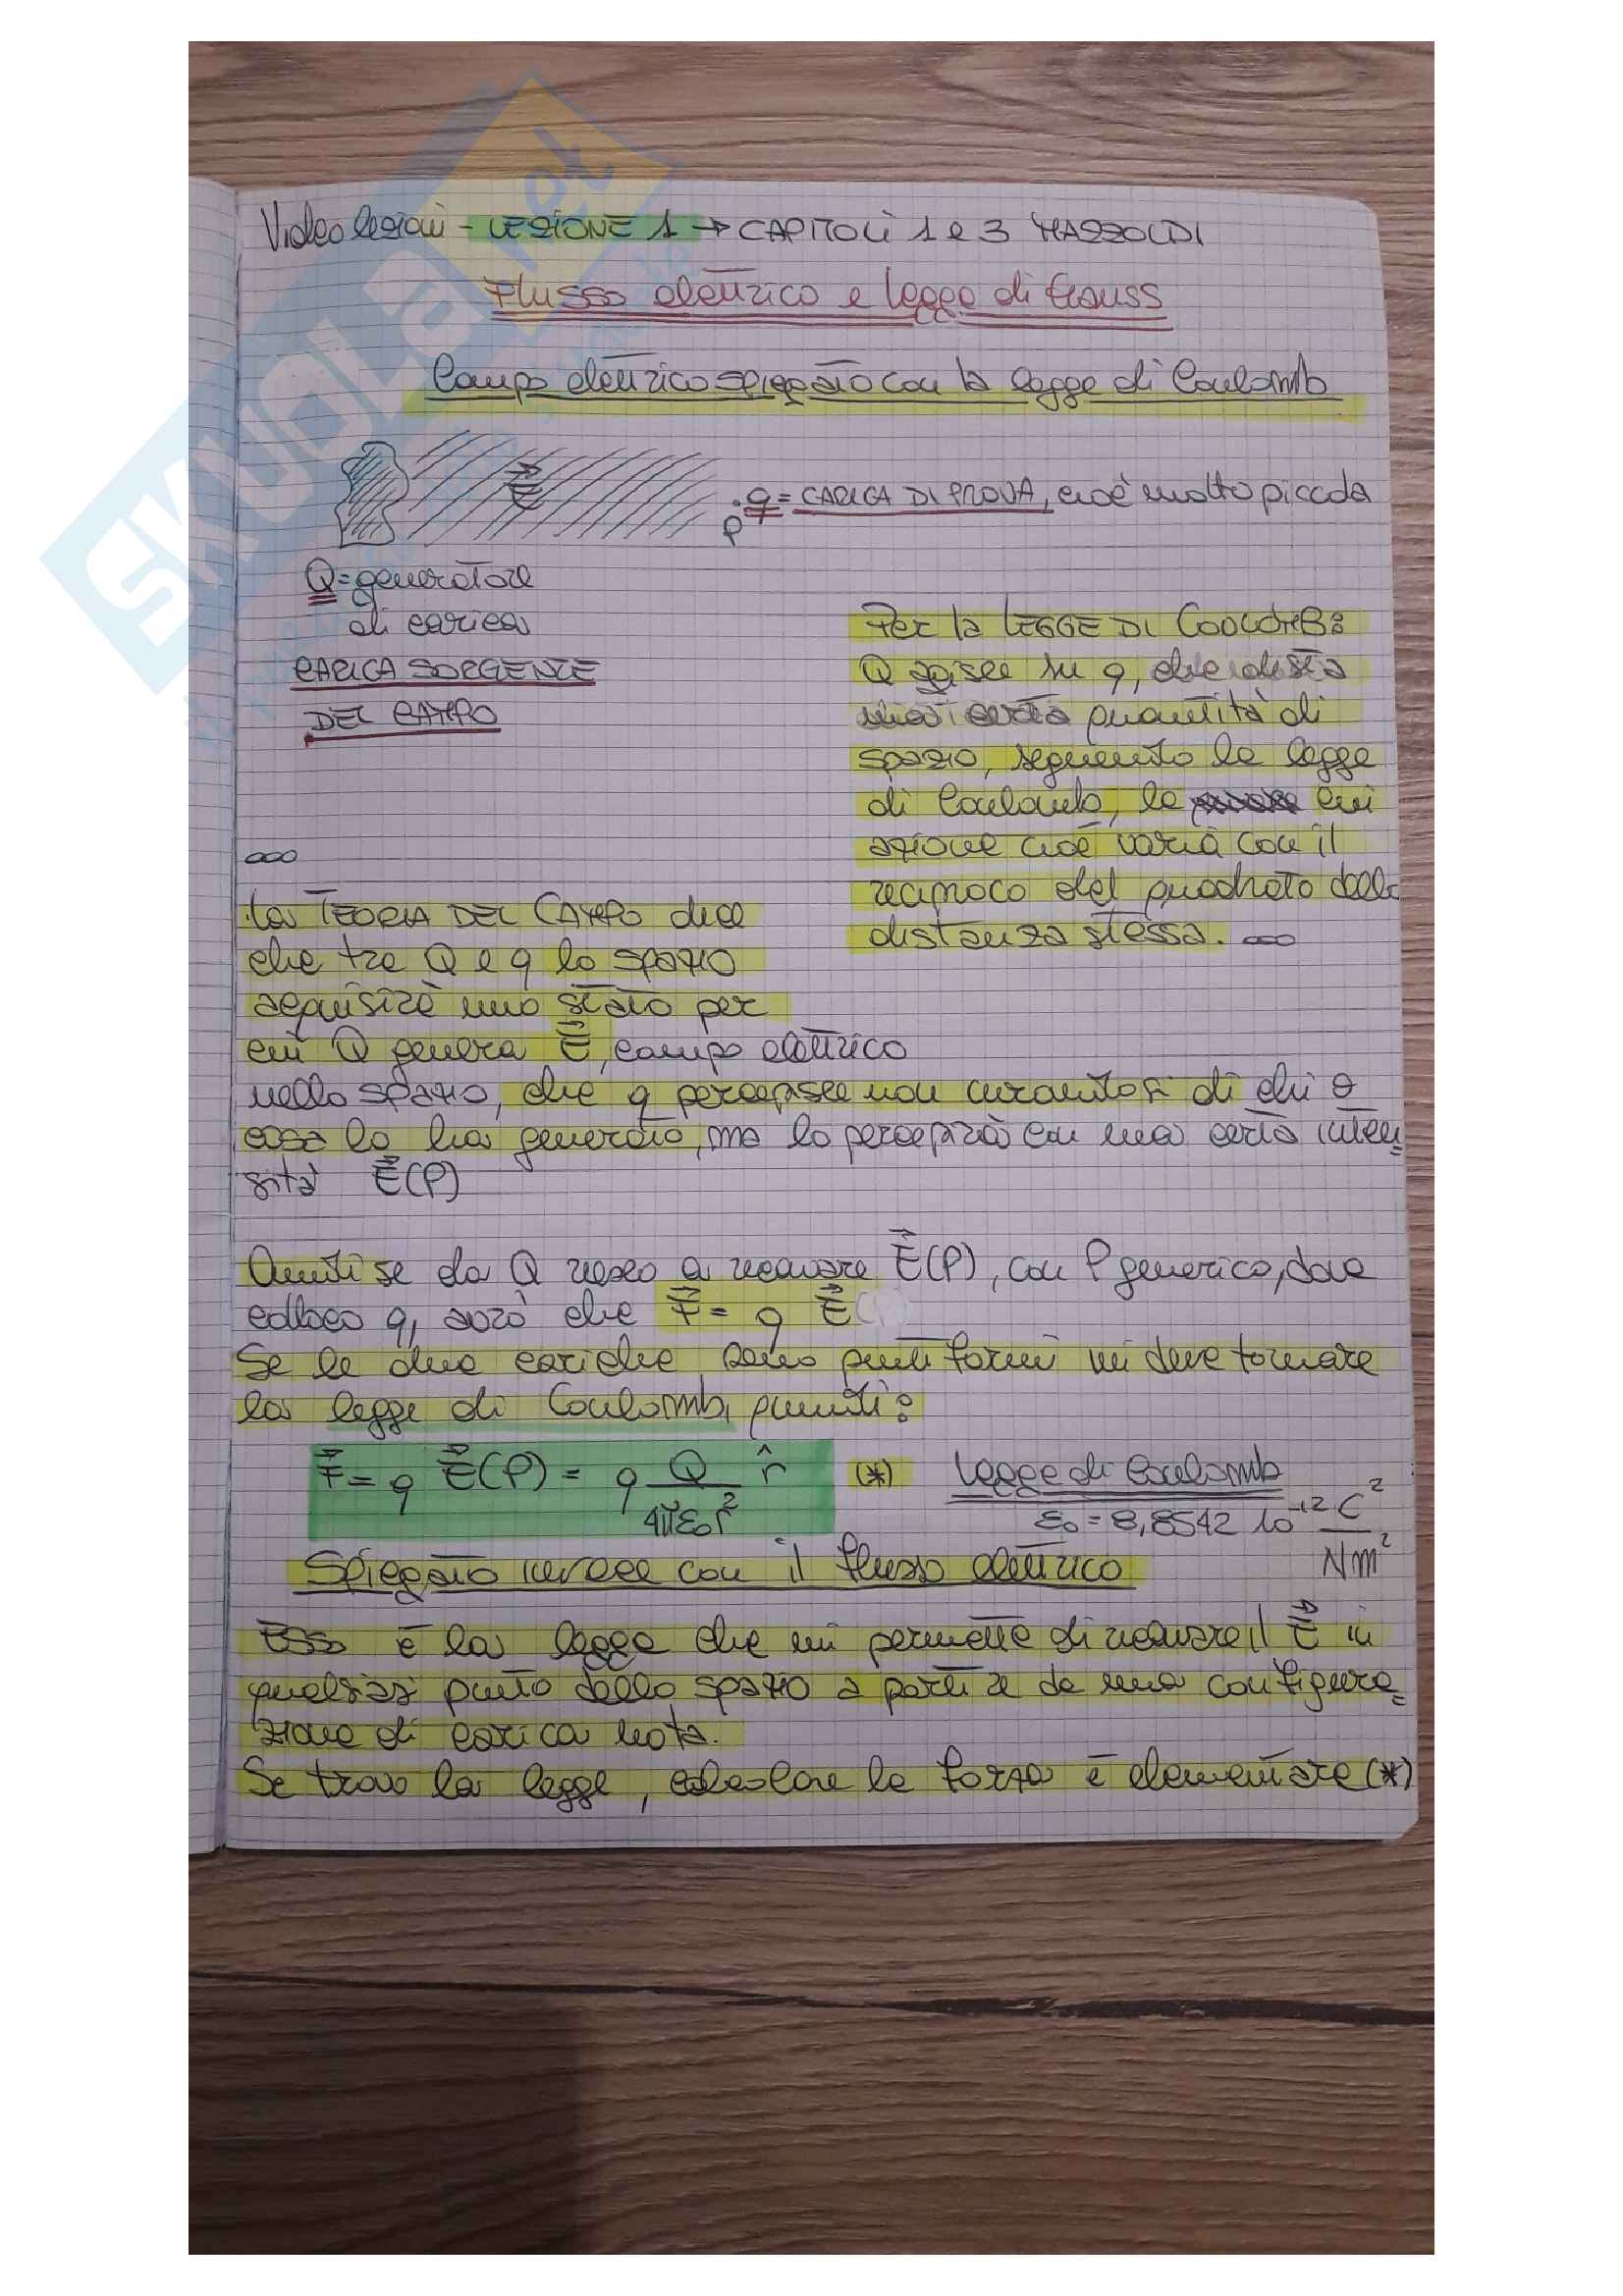 Videolezioni - LEZIONE 1 → CAPITOLI 1 e 3 MAZZOLDI
Flusso elettrico e legge di Gauss
Campo elettrico spiegato con la legge di Coulomb
E⃗
. q = CARICA DI PROVA, cioè molto piccola
P
Q = generatore
di carica
CARICA SORGENTE
DEL CAMPO
Per la LEGGE DI COULOMB:
Q agisce su q, che dista
una certa quantità di
spazio, seguendo la legge
di Coulomb, la cui
azione cioè varia con il
reciproco del quadrato della
distanza stessa.
La TEORIA DEL CAMPO dice
che tra Q e q lo spazio
acquisirà uno stato per
cui Q genera E⃗, campo elettrico
nello spazio, che q percepisce non curandosi di chi o
cosa lo ha generato, ma lo percepirà con una certa inten=
sità E⃗(P)
Quindi se da Q riesco a ricavare E⃗(P), con P generico, dove
colloco q, avrò che F⃗ = q E⃗(P)
Se le due cariche sono puntiformi mi deve tornare
la legge di Coulomb, quindi:
F⃗ = q E⃗(P) = q Q/(4πε₀r²) r̂ (*) Legge di Coulomb
ε₀ = 8,8542 10⁻¹² C²/Nm²
Spiegato invece con il flusso elettrico
Esso è la legge che mi permette di ricavare il E⃗ in
qualsiasi punto dello spazio a partire da una configura=
zione di carica nota.
Se trovo la legge, calcolare la forza è elementare (*)
SKUOLA.net